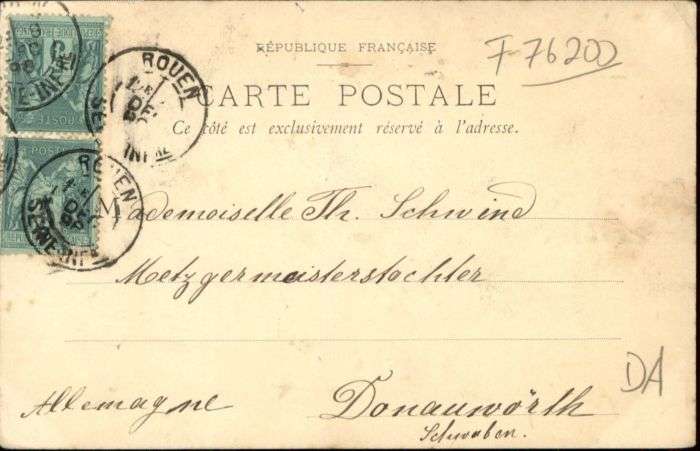 RÉPUBLIQUE FRANÇAISE
F-76200
CARTE POSTALE
Ce côté est exclusivement réservé à l'adresse.
ROUEN
DÉC
SEINE-INFRE
ROUEN
SEINE-INFRE
POSTE
Mademoiselle Th. Schwind
Metzgermeisterstochter
DA
Allemagne
Donauwörth
Schwaben.